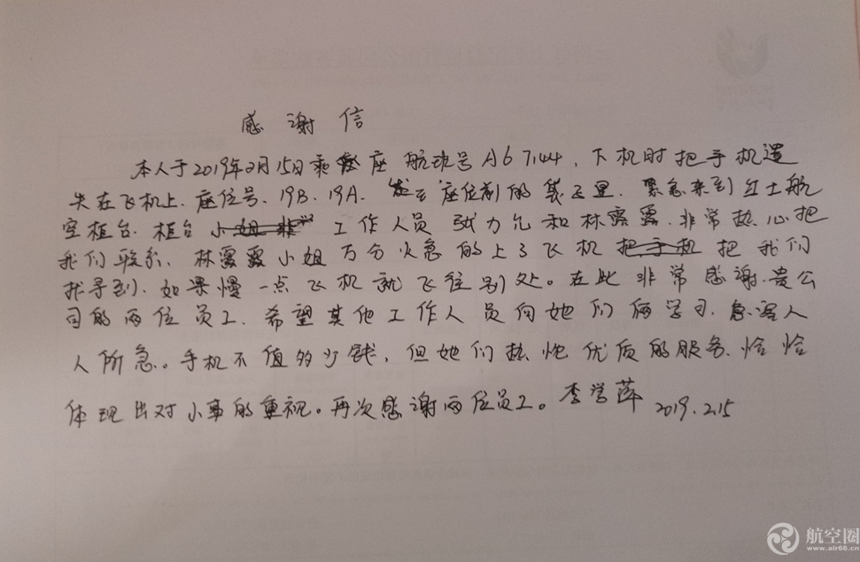 感谢信
本人于2019年2月15日乘座航班号A67144，下机时把手机遗
失在飞机上．座位号．19B．19A．座位前的袋子里．紧急来到红土航
空柜台．柜台小姐非常工作人员张力允和林露露．非常热心把
我们联系．林露露小姐万分火急的上了飞机把手机把我们
找寻到．如果慢一点飞机就飞往别处。在此非常感谢．贵公
司的两位员工．希望其他工作人员向她们俩学习．急客人
人所急。手机不值多少钱，但她们热忱优质的服务．恰恰
体现出对小事的重视。再次感谢两位员工。李学萍 2019.2.15
航空圈
www.air66.cn